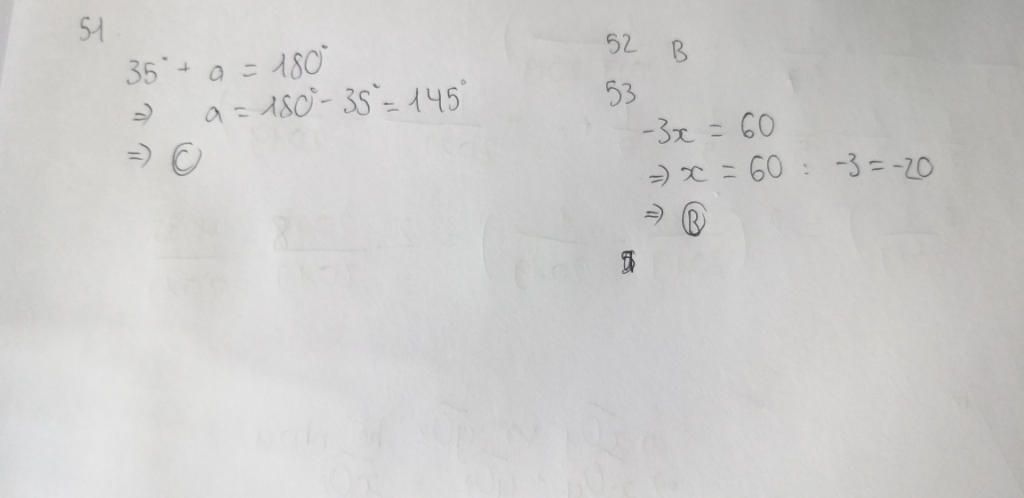 51
35° + a = 180°
=> a = 180° - 35° = 145°
=> C
52 B
53
-3x = 60
=> x = 60 : -3 = -20
=> B